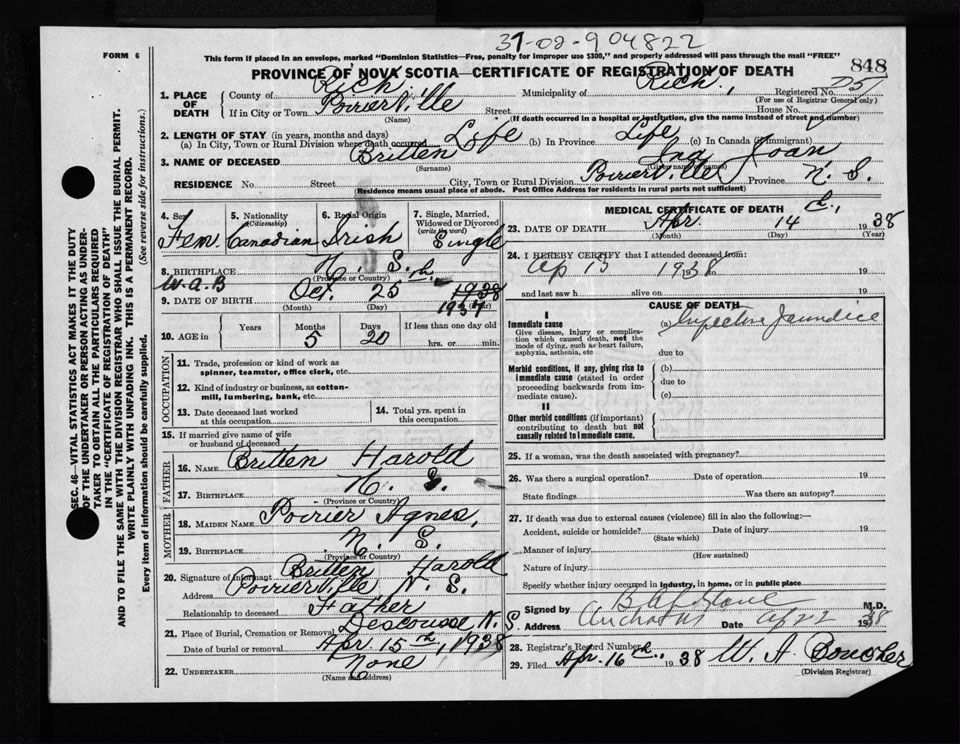 37-02-9 04822
This form if enclosed in an envelope, marked "Dominion Statistics—Free, penalty for improper use $300," and properly addressed will pass through the mail "FREE"
FORM 6
848
PROVINCE OF NOVA SCOTIA—CERTIFICATE OF REGISTRATION OF DEATH
1. PLACE OF DEATH
County of Rich. Municipality of Rich., Registered No.
(For use of Registrar General only)
If in City or Town Poirierville Street House No.
(Name) (If death occurred in a hospital or institution, give the name instead of street and number)
2. LENGTH OF STAY (in years, months and days)
(a) In City, Town or Rural Division where death occurred Life (b) In Province Life (c) In Canada (if immigrant)
3. NAME OF DECEASED Britten Ina Joan
(Surname) (Given names)
RESIDENCE No. Street City, Town or Rural Division Poirierville Province N. S.
(Residence means usual place of abode. Post Office Address for residents in rural parts not sufficient)
4. Sex 5. Nationality (Citizenship) 6. Racial Origin 7. Single, Married, Widowed or Divorced (write the word)
Fem. Canadian Irish Single
8. BIRTHPLACE N. S.
(Province or Country)
W.A.B
9. DATE OF BIRTH Oct. 25 th. 1938
1937
(Month) (Day) (Year)
10. AGE in Years Months Days If less than one day old
5 20 hrs. or min.
OCCUPATION
11. Trade, profession or kind of work as spinner, teamster, office clerk, etc.
12. Kind of industry or business, as cotton-mill, lumbering, bank, etc.
13. Date deceased last worked at this occupation
14. Total yrs. spent in this occupation
15. If married give name of wife or husband of deceased
FATHER
16. NAME Britten Harold
17. BIRTHPLACE N. S.
(Province or Country)
MOTHER
18. MAIDEN NAME Poirier Agnes,
19. BIRTHPLACE N. S.
(Province or Country)
20. Signature of Informant Britten Harold
Address Poirierville N. S.
Relationship to deceased Father
21. Place of Burial, Cremation or Removal Descousse N. S.
Date of burial or removal Apr. 15 th, 1938
22. UNDERTAKER None
(Name and Address)
MEDICAL CERTIFICATE OF DEATH
23. DATE OF DEATH Apr. 14 th, 1938
(Month) (Day) (Year)
24. I HEREBY CERTIFY that I attended deceased from:
Ap 13 1938 to 19
and last saw h alive on 19
CAUSE OF DEATH
I
Immediate cause (a) Infective Jaundice
Give disease, injury or complication which caused death, not the mode of dying, such as heart failure, asphyxia, asthenia, etc
due to
Morbid conditions, if any, giving rise to immediate cause (stated in order proceeding backwards from immediate cause).
(b)
due to
(c)
II
Other morbid conditions (if important) contributing to death but not causally related to immediate cause.
25. If a woman, was the death associated with pregnancy?
26. Was there a surgical operation? Date of operation 19
State findings Was there an autopsy?
27. If death was due to external causes (violence) fill in also the following:—
Accident, suicide or homicide? Date of injury 19
(State which)
Manner of injury
(How sustained)
Nature of injury
Specify whether injury occurred in industry, in home, or in public place
Signed by M.D.
Address Arichat NS Date 1938
28. Registrar's Record Number
29. Filed Apr. 16 th, 1938 W. A. Boucher
(Division Registrar)
SEC. 46—VITAL STATISTICS ACT MAKES IT THE DUTY
OF THE UNDERTAKER OR PERSON ACTING AS UNDERTAKER
TO OBTAIN ALL THE PARTICULARS REQUIRED
IN THE "CERTIFICATE OF REGISTRATION OF DEATH"
AND TO FILE THE SAME WITH THE DIVISION REGISTRAR WHO SHALL ISSUE THE BURIAL PERMIT.
WRITE PLAINLY WITH UNFADING INK. THIS IS A PERMANENT RECORD.
Every item of information should be carefully supplied. (See reverse side for instructions.)